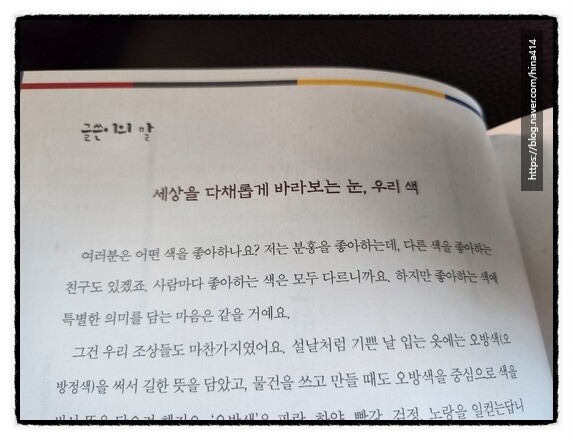 글쓴이의 말
세상을 다채롭게 바라보는 눈, 우리 색
여러분은 어떤 색을 좋아하나요? 저는 분홍을 좋아하는데, 다른 색을 좋아하는
친구도 있겠죠. 사람마다 좋아하는 색은 모두 다르니까요. 하지만 좋아하는 색에
특별한 의미를 담는 마음은 같을 거예요.
그건 우리 조상들도 마찬가지였어요. 설날처럼 기쁜 날 입는 옷에는 오방색(오
방정색)을 써서 길한 뜻을 담았고, 물건을 쓰고 만들 때도 오방색을 중심으로 색을
'오방색'은 파랑, 하양, 빨강, 검정, 노랑을 일컫는답니
https://blog.naver.com/hina414